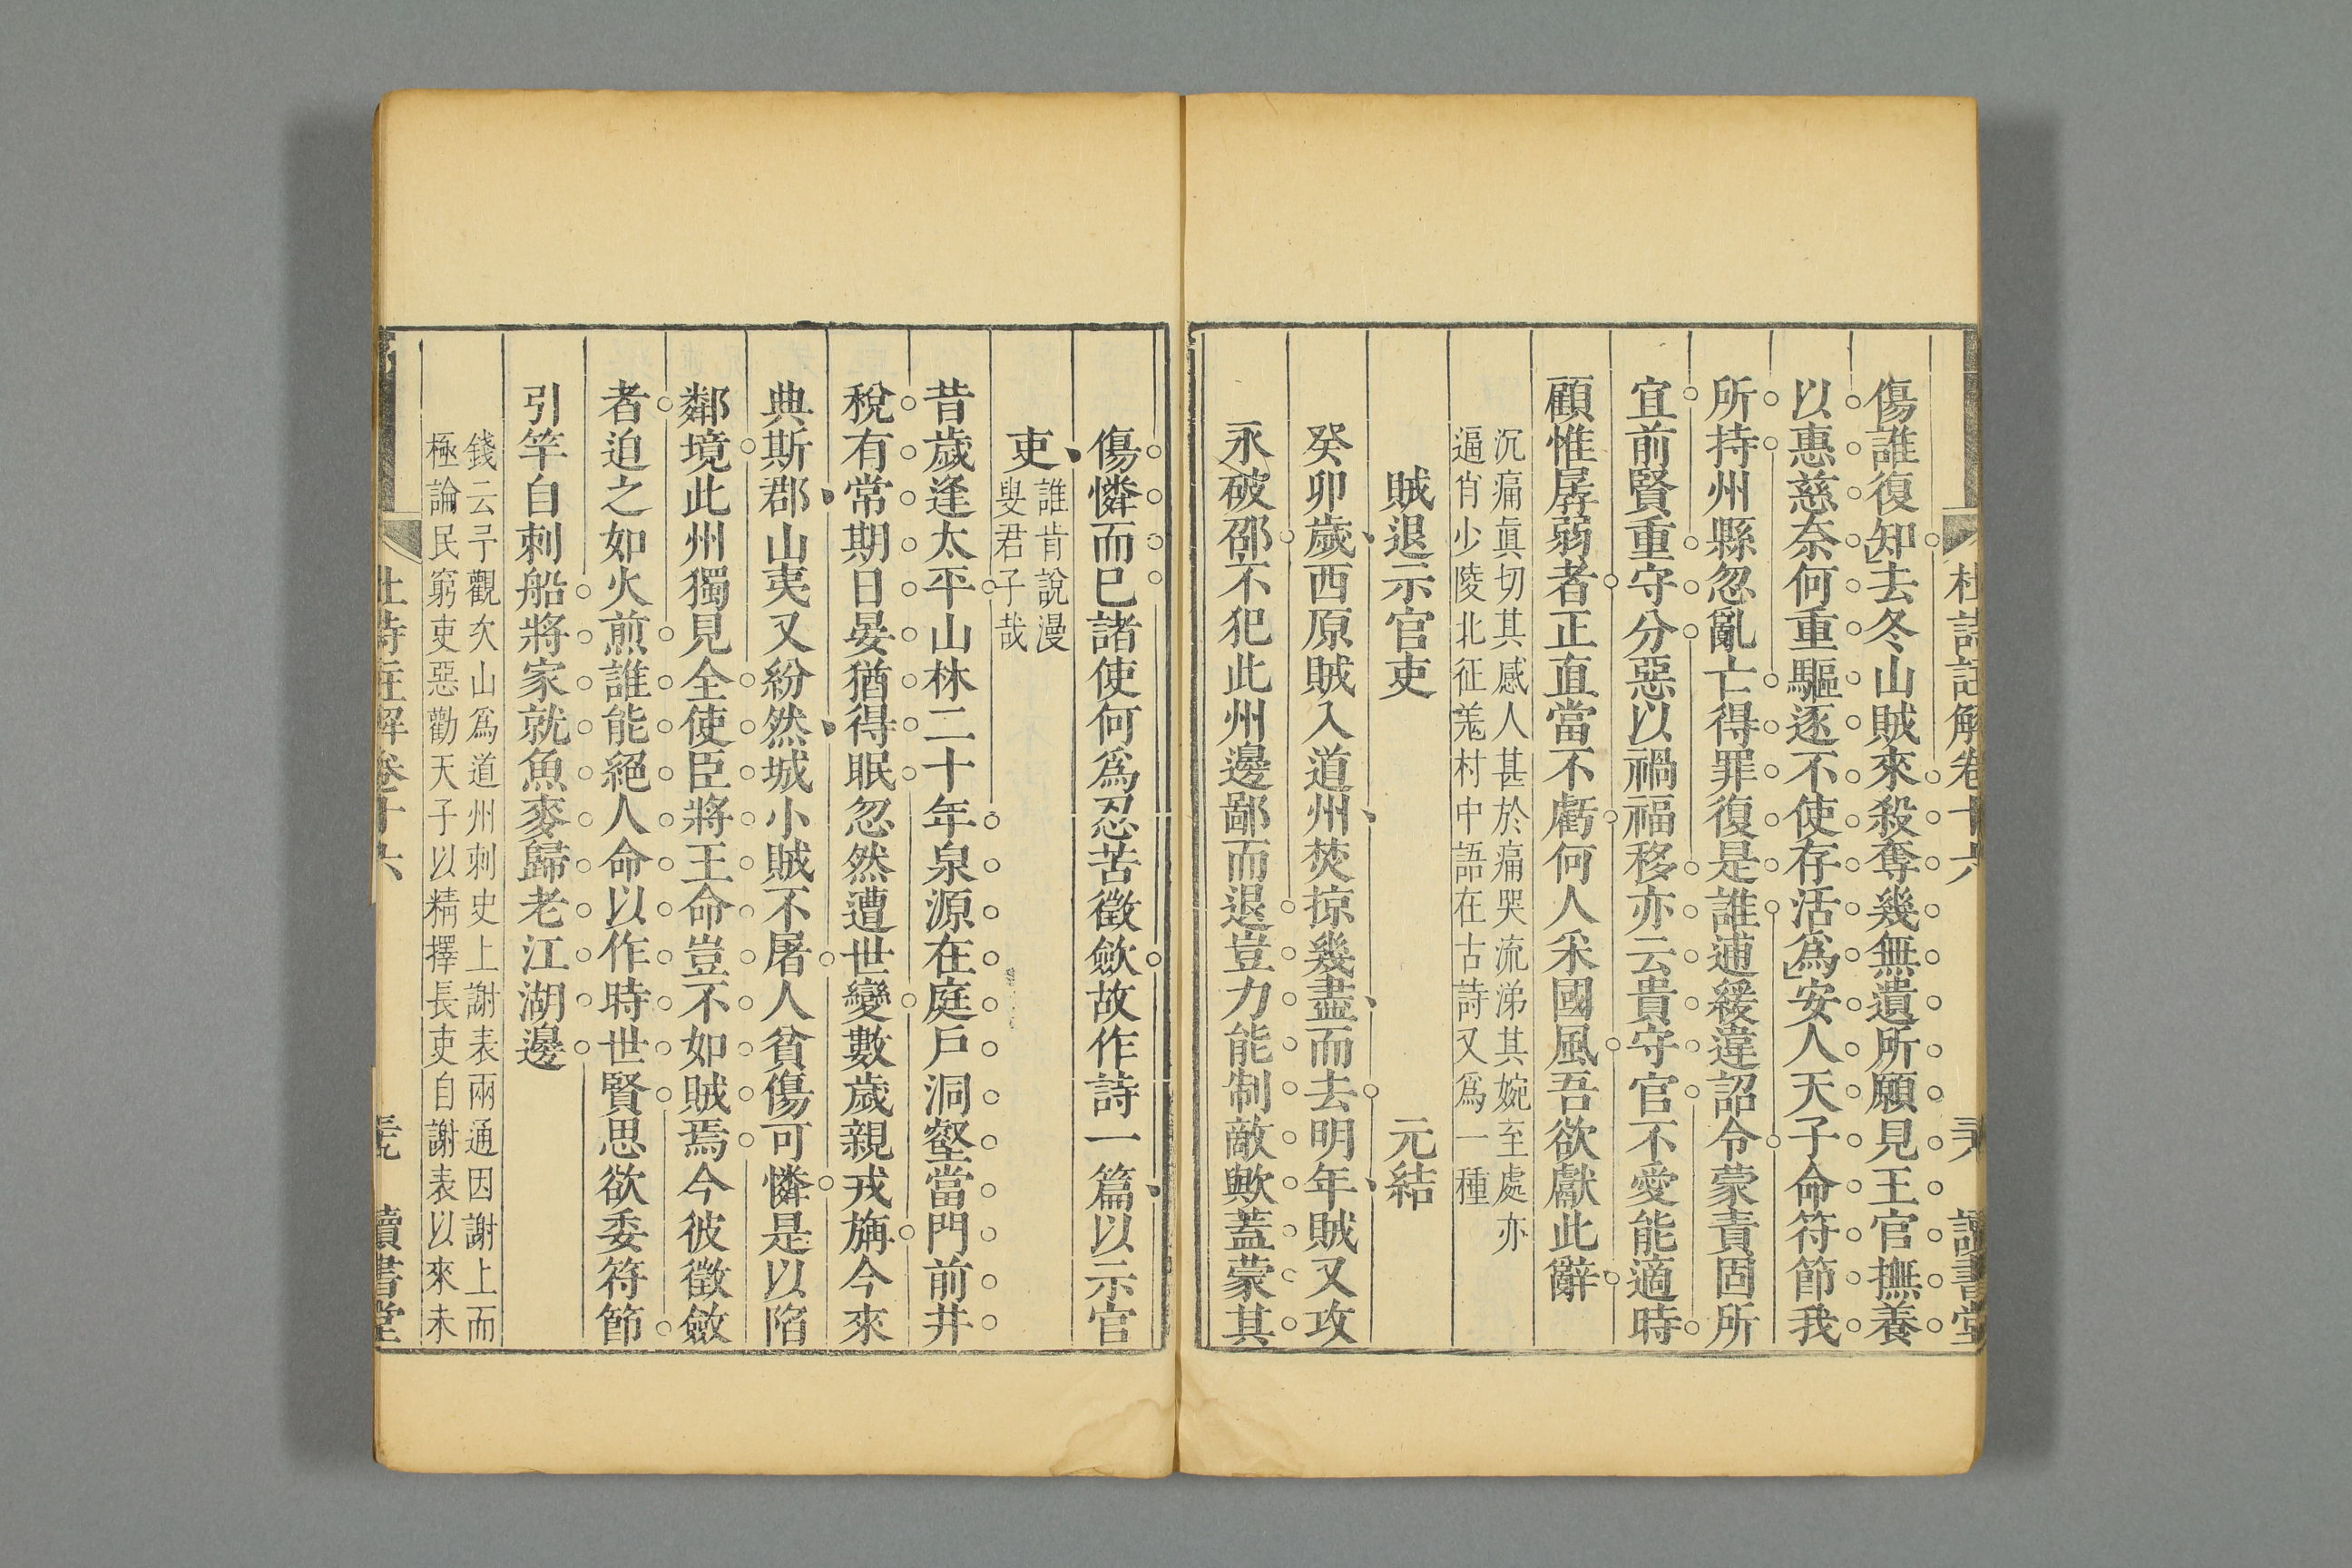 杜詩註解卷十六 讀書堂
傷誰復知去冬山賊來殺奪幾無遺所願見王官撫養
以惠慈奈何重驅逐不使存活爲安人天子命符節我
所持州縣忽亂亡得罪復是誰逋緩違詔令蒙責固所
宜前賢重守分惡以禍福移亦云貴守官不愛能適時
顧惟孱弱者正直當不虧何人采國風吾欲獻此辭
沉痛眞切其感人甚於痛哭流涕其婉至處亦
逼肖少陵北征羗村中語在古詩又爲一種
賊退示官吏 元結
癸卯歲西原賊入道州焚掠幾盡而去明年賊又攻
永破邵不犯此州邊鄙而退豈力能制敵歟蓋蒙其
傷憐而已諸使何爲忍苦徵歛故作詩一篇以示官
吏誰肯說漫
叟君子哉
昔歲逢太平山林二十年泉源在庭戶洞壑當門前井
稅有常期日晏猶得眠忽然遭世變數歲親戎旃今來
典斯郡山夷又紛然城小賊不屠人貧傷可憐是以陷
鄰境此州獨見全使臣將王命豈不如賊焉今彼徵斂
者迫之如火煎誰能絕人命以作時世賢思欲委符節
引竿自刺船將家就魚麥歸老江湖邊
錢云予觀次山爲道州刺史上謝表兩通因謝上而
極論民窮吏惡勸天子以精擇長吏自謝表以來未
杜詩註解卷十六 讀書堂